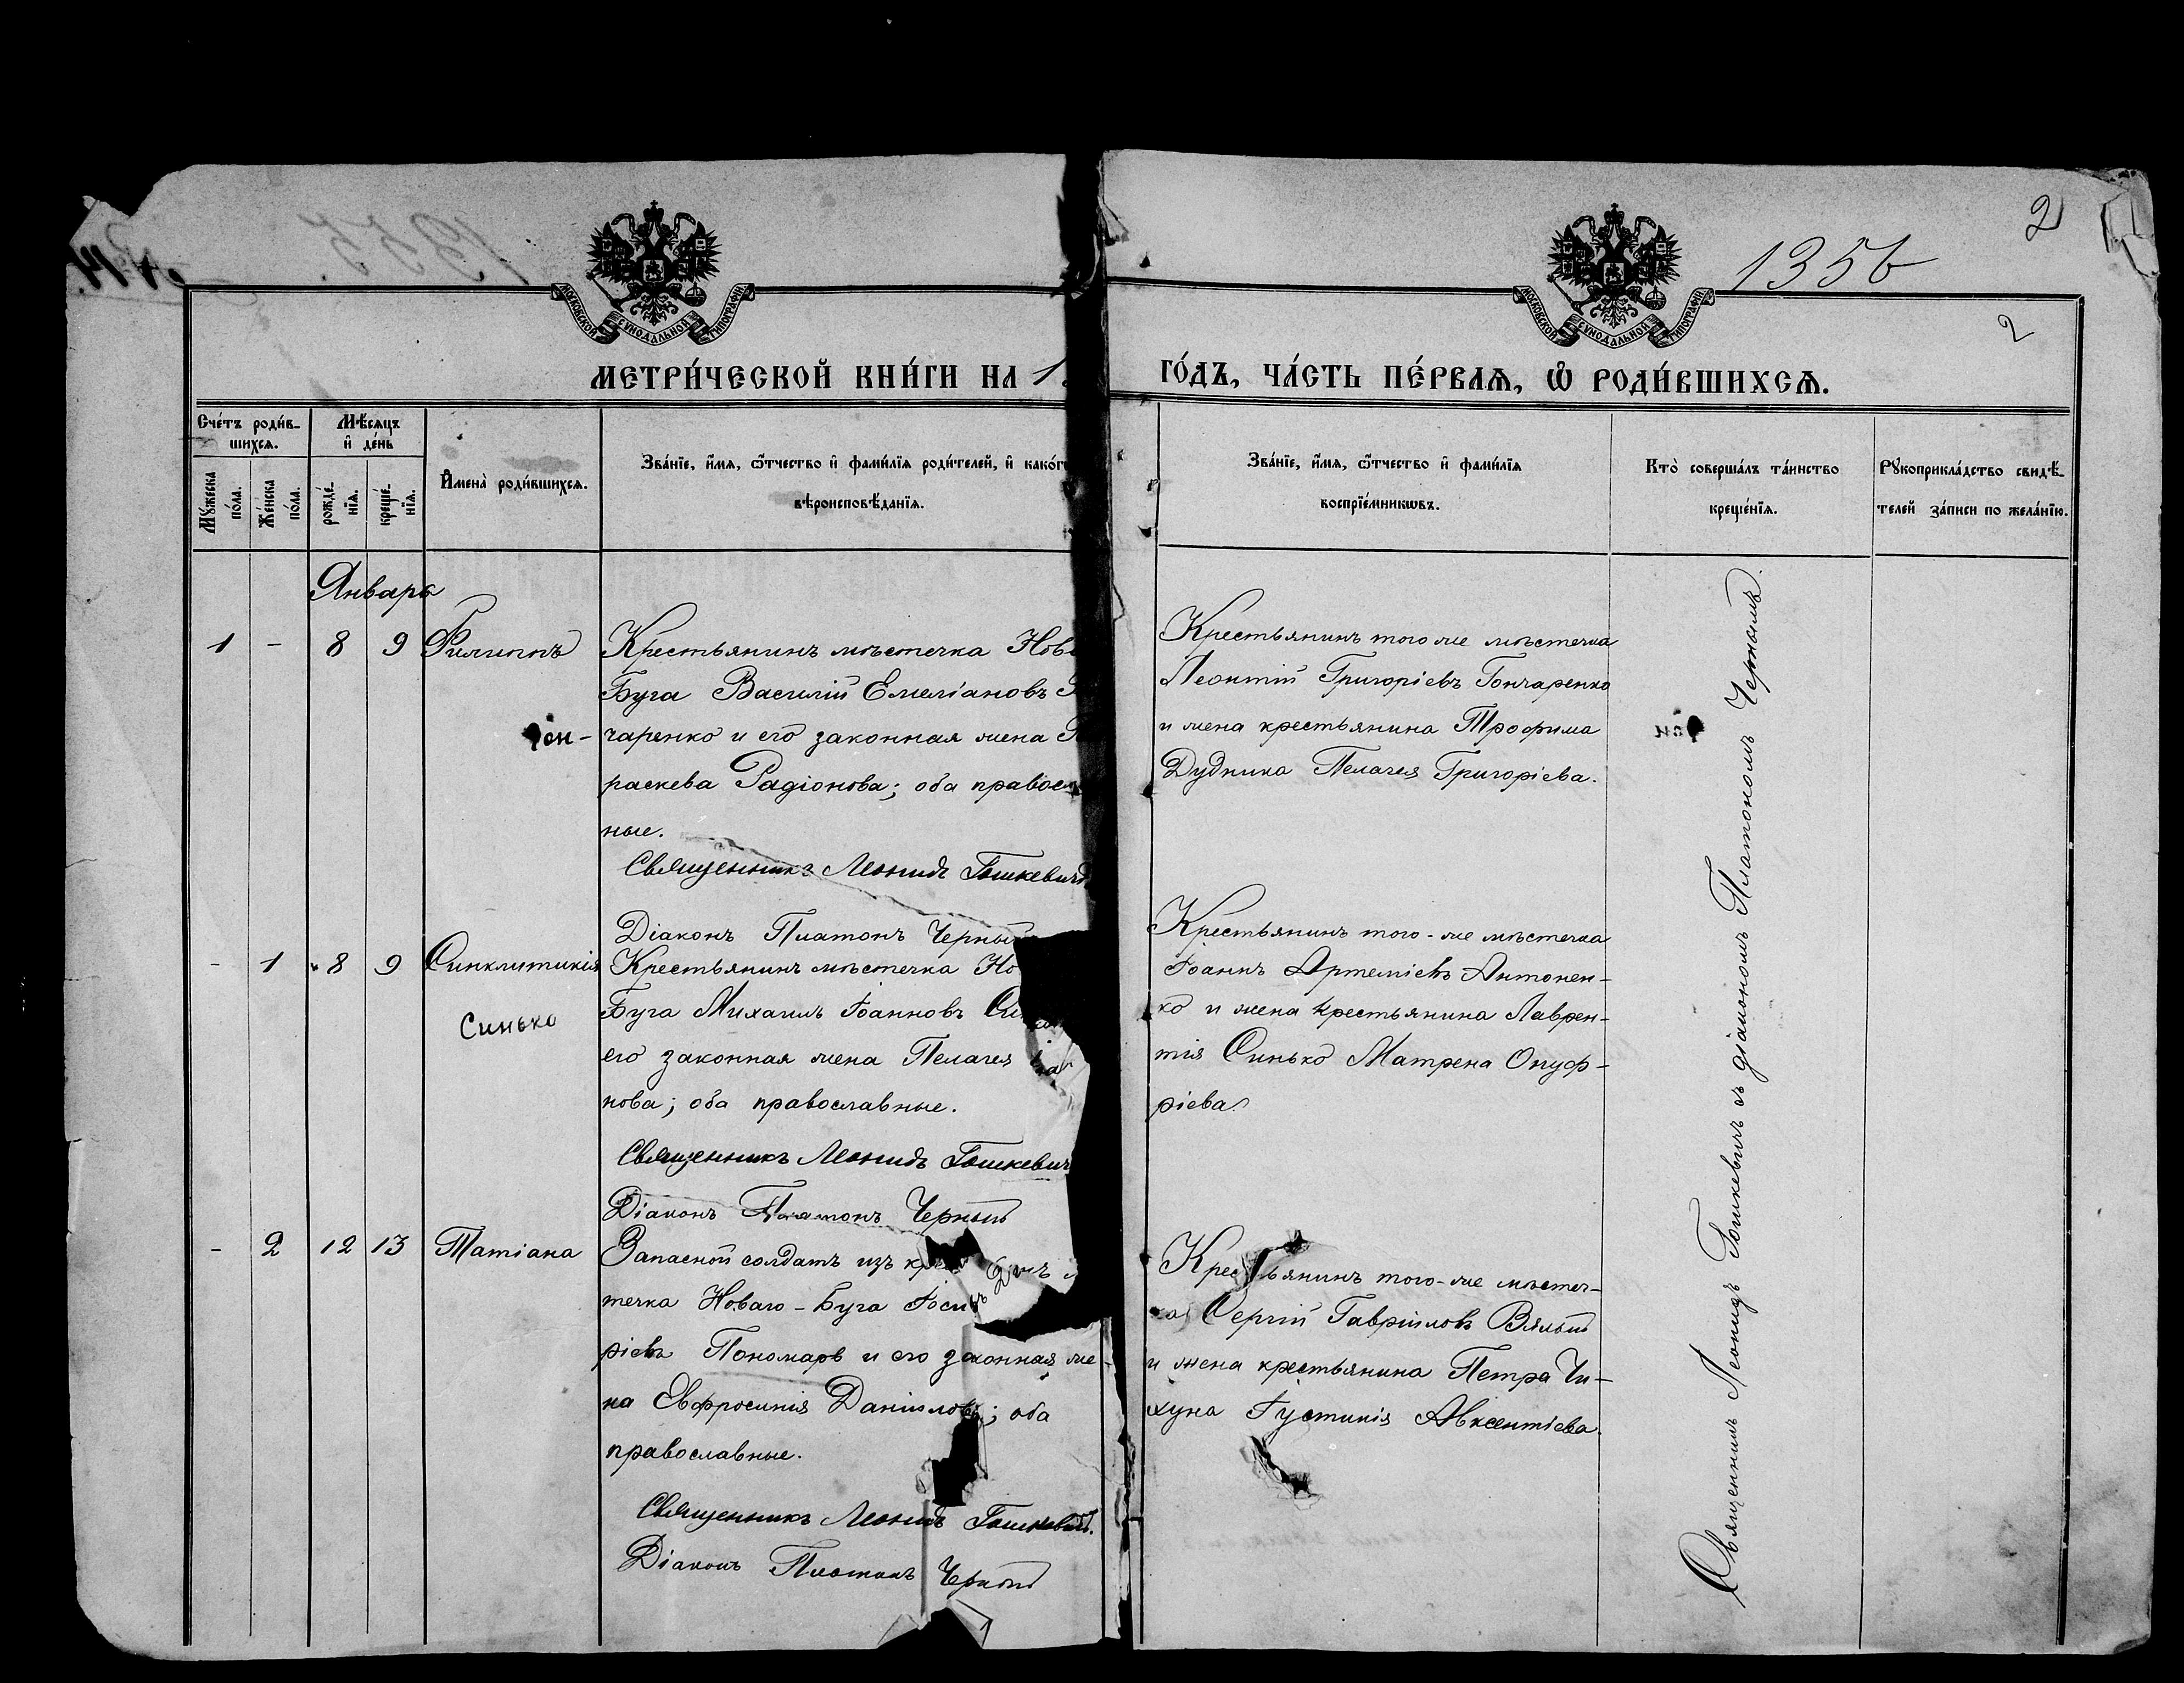 1356
2
2
МОСКОВСКОЙ СУНОДАЛЬНОЙ ТИПОГРАФІИ
МОСКОВСКОЙ СУНОДАЛЬНОЙ ТИПОГРАФІИ
МЕТРИ́ЧЕСКОЙ КНИ́ГИ НА 1
ГО́ДЪ, ЧА́СТЬ ПЕ́РВАЯ, Ѽ РОДИ́ВШИХСЯ.
Сче́тъ роди́в-
шихся.
Мꙋ́жеска
по́ла.
Же́нска
по́ла.
Мѣ́сяцъ
и҆ де́нь
рожде́-
нїя.
креще́-
нїя.
И҆мена̀ роди́вшихся.
Зва́нїе, и҆́мя, ѻ҆́тчество и҆ фами́лїя роди́телей, и҆ како́г
вѣроисповѣ́данїя.
Зва́нїе, и҆́мя, ѻ҆́тчество и҆ фами́лїя
воспрїе́мникѡвъ.
Кто̀ соверша́лъ та́инство
креще́нїя.
Рꙋкоприкла́дство свидѣ́-
телей за́писи по жела́нїю.
Январь
1 - 8 9 Филиппъ
Крестьянинъ мѣстечка Нов
Буга Василій Емеліановъ
Гон- чаренко и его законная жена
раскева Радіонова; оба правосл
ные.
Священникъ Леонидъ Гошкевичъ
Діаконъ Платонъ Черный
Крестьянинъ того же мѣстечка
Леонтій Григоріевъ Гончаренко
и жена крестьянина Трофима
Дудника Пелагея Григоріева.
- 1 8 9 Синклитикія
Синько
Крестьянинъ мѣстечка Но
Буга Михаилъ Іоанновъ Си
его законная жена Пелагея
нова; оба православные.
Священникъ Леонидъ Гошкевичъ
Діаконъ Платонъ Черный
Крестьянинъ того-же мѣстечка
Іоаннъ Артеміевъ Антонен-
ко и жена крестьянина Лаврен-
тія Синько Матрена Онуф-
ріева.
- 2 12 13 Татіана
Запасной солдатъ изъ кре
течка Новаго-Буга Іоси
ріевъ Пономарь и его законная же-
на Евфросинія Даніилова; оба
православные.
Священникъ Леонидъ Гошкевичъ.
Діаконъ Платонъ Черный
Крестьянинъ того-же мѣстеч-
ка Сергій Гавріиловъ Вялый
и жена крестьянина Петра Чи-
хуна Іустинія Авксентіева.
Священникъ Леонидъ Гошкевичъ съ діакономъ Платономъ Чернымъ.